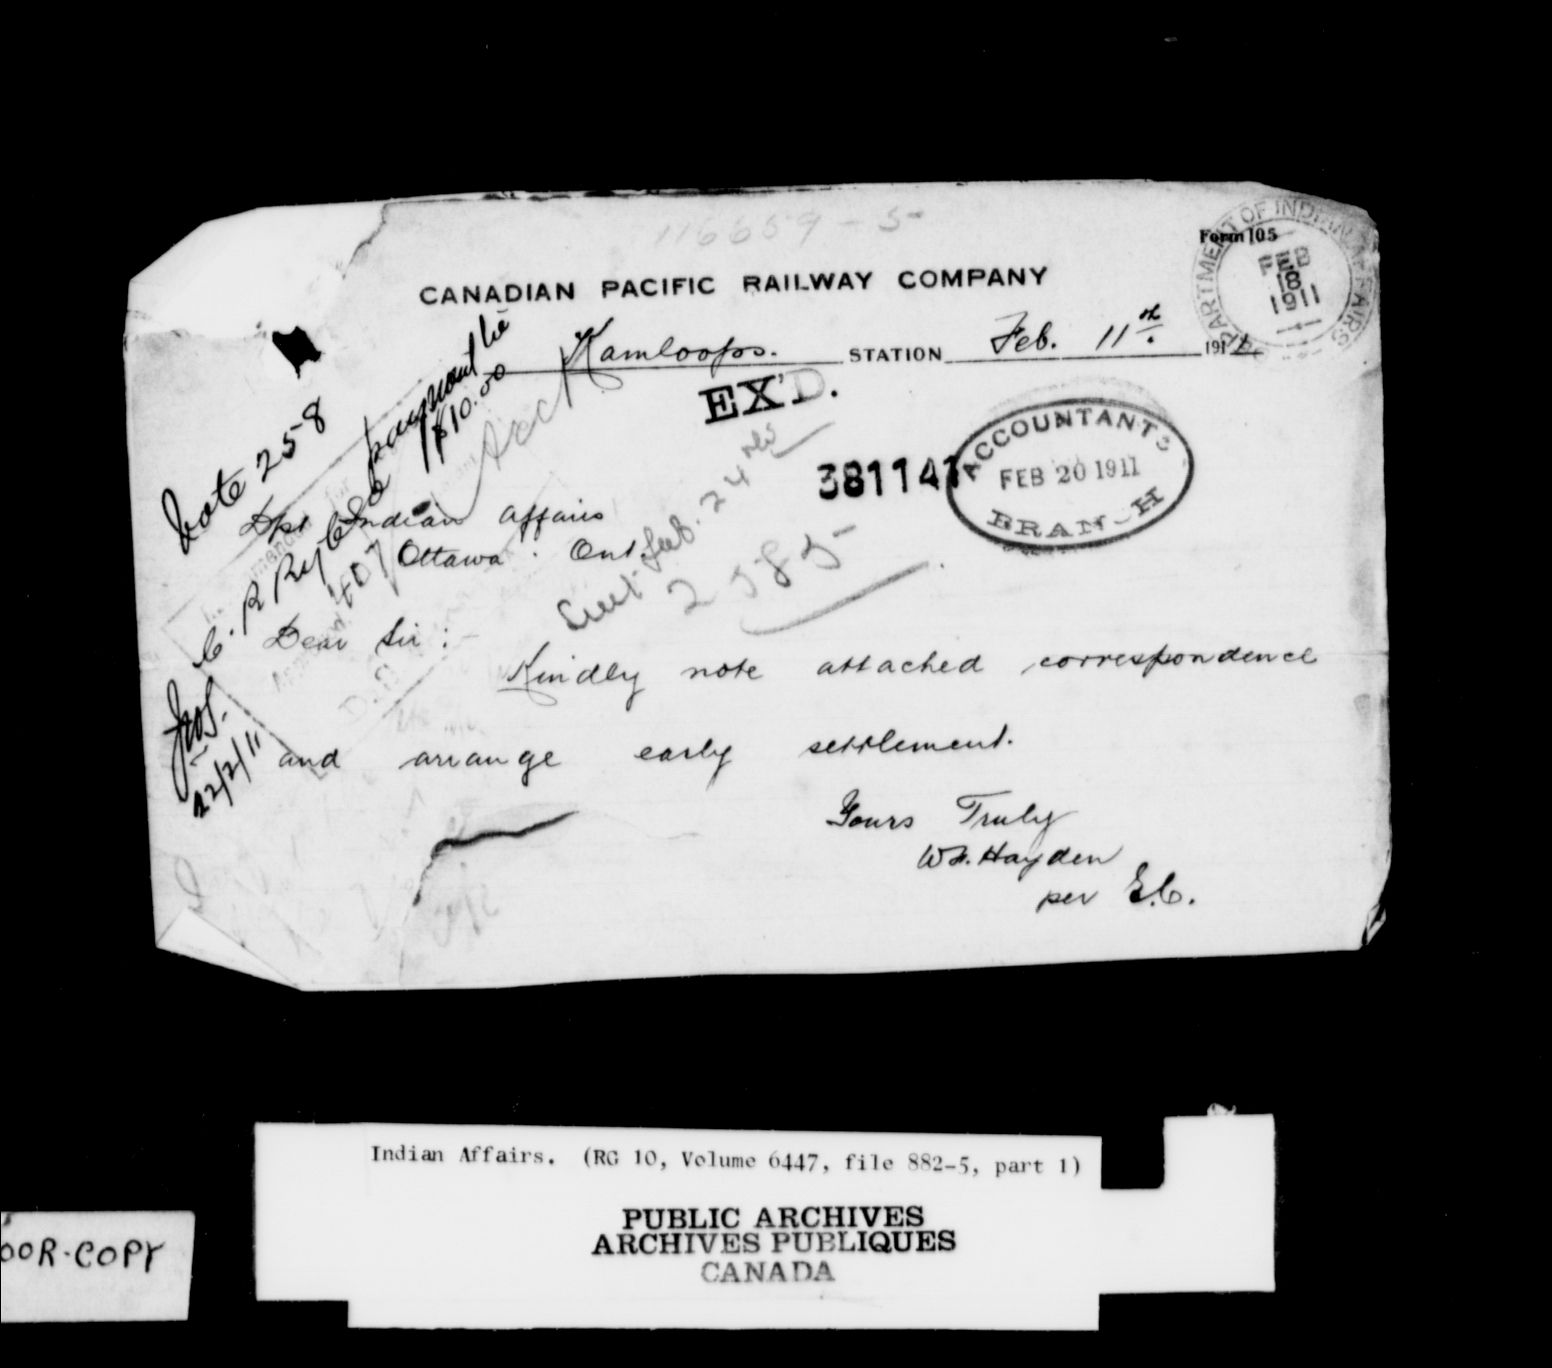 116659-5
Form 105
DEPARTMENT OF INDIAN AFFAIRS
FEB
18
1911
CANADIAN PACIFIC RAILWAY COMPANY
Kamloops. STATION Feb. 11th. 191
EX'D.
381141
ACCOUNTANT'S
FEB 20 1911
BRANCH
Vote 258
payment be
$10.00
C. P. Ry Co
407
22/2/11
Feb. 24
2585
Dpt Indian Affairs
Ottawa. Ont.
Dear Sir:-
Kindly note attached correspondence
and arrange early settlement.
Yours Truly
W. Hayden
per E.C.
Indian Affairs. (RG 10, Volume 6447, file 882-5, part 1)
PUBLIC ARCHIVES
ARCHIVES PUBLIQUES
CANADA
OOR-COPY